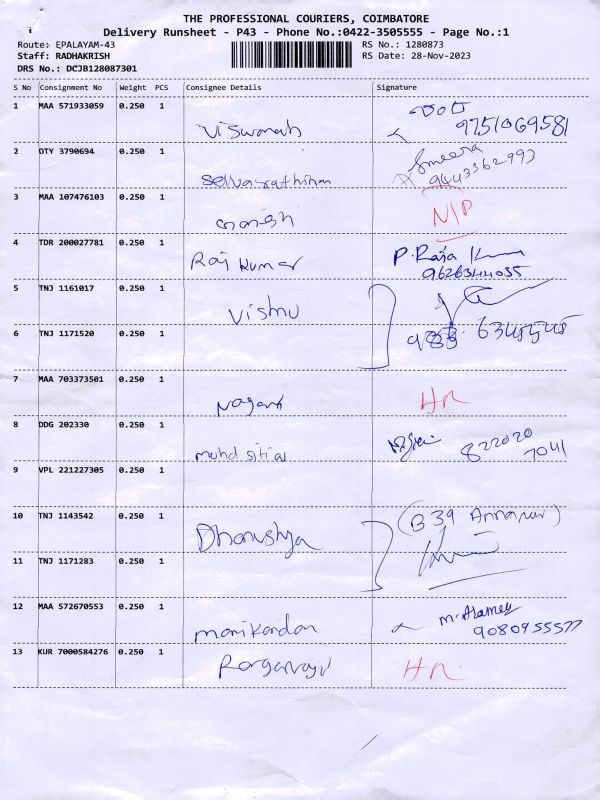 THE PROFESSIONAL COURIERS, COIMBATORE
Delivery Runsheet - P43 - Phone No.:0422-3505555 - Page No.:1
Route: EPALAYAM-43 RS No.: 1280873
Staff: RADHAKRISH RS Date: 28-Nov-2023
DRS No.: DCJB128087301
S No Consignment No Weight PCS Consignee Details Signature
1 MAA 571933059 0.250 1
Viswanath 9751069581
2 OTY 3790694 0.250 1
Selvarathinam 9643362993
3 MAA 107476103 0.250 1
N/P
4 TDR 200027781 0.250 1
Raj Kumar P. Raja Kumar
9626344035
5 TNJ 1161017 0.250 1
Vishnu
6 TNJ 1171520 0.250 1
7 MAA 703373501 0.250 1
8 DDG 202330 0.250 1
mohd 822020
7041
9 VPL 221227305 0.250 1
10 TNJ 1143542 0.250 1
Dhanushya
11 TNJ 1171283 0.250 1
12 MAA 572670553 0.250 1
manikandan 9080955577
13 KUR 7000584276 0.250 1